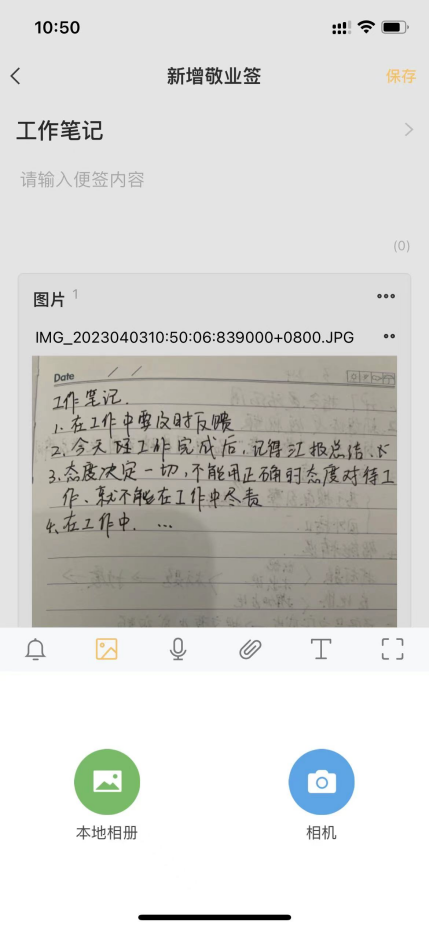 10:50
新增敬业签
保存
工作笔记
请输入便签内容
(0)
图片 1
IMG_2023040310:50:06:839000+0800.JPG
Date
工作笔记.
1. 在工作中要及时反馈
2. 今天 工作完成后,记得汇报总结.
3. 态度决定一切,不能用正确的态度对待工
作、就不能在工作中尽责
4. 在工作中. ...
本地相册
相机